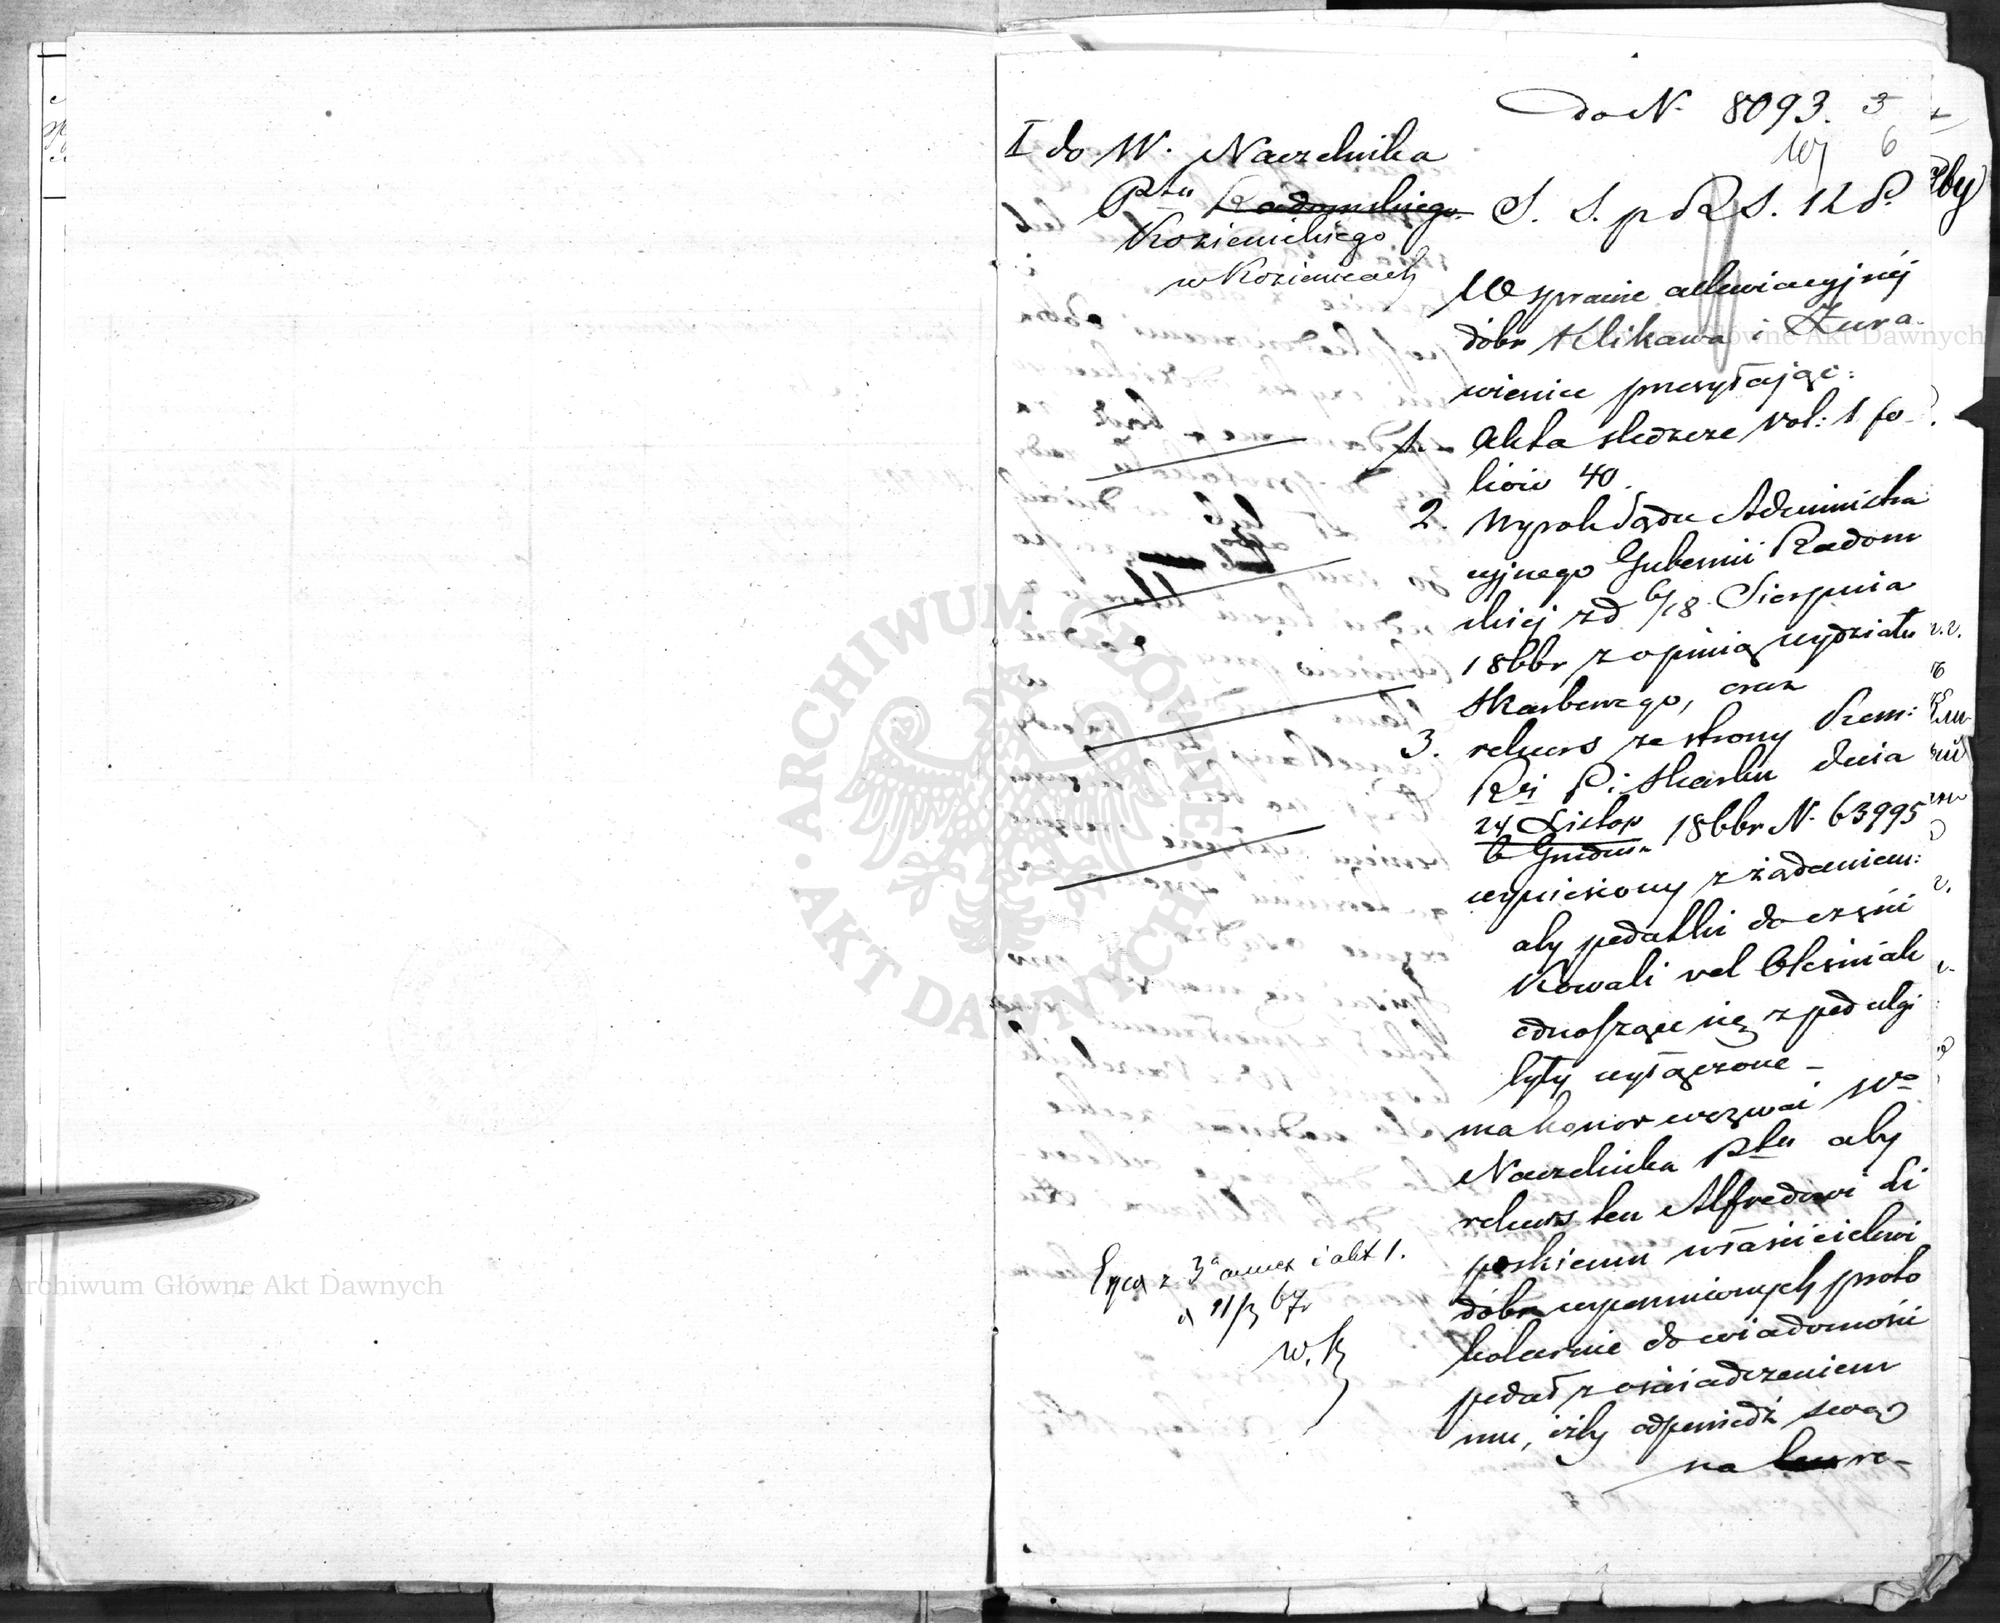 do N. 8093. 3
6
I do W. Naczelnika
Ptu Radomskiego
Kozienickiego
w Kozienicach
S. S. p R S. K P.
W sprawie allewiacyjnéj
dóbr Klikawa i Żura-
wieniec przesyłając:
1. Akta śledcze vol: 1 fo-
liów 40.
2. Wyrok Sądu Administra
cyjnego Gubernii Radom
skiej z d 6/18 Sierpnia
1866r z opinią wydziału
skarbowego, oraz
3. rekurs ze strony Kom:
R P. i Skarbu dnia
24 Listop
6 Grudnia 1866r N. 63995
wyniesiony z żądaniem:
aby podatki do części
Kowali vel Oleśniak
odnoszące się z pod ulgi
były wyłączone –
ma honor wezwać Wo
Naczelnika Ptu aby
rekurs ten Alfredowi Li
poskiemu właścicielowi
dóbr wspomnionych proto
kolarnie do wiadomości
podał z oświadczeniem
mu, iżby odpowiedź swą
na re-
z 3a annex i akt 1.
d 11/3 67r
W. K
ARCHIWUM GŁÓWNE AKT DAWNYCH
Archiwum Główne Akt Dawnych
Archiwum Główne Akt Dawnych